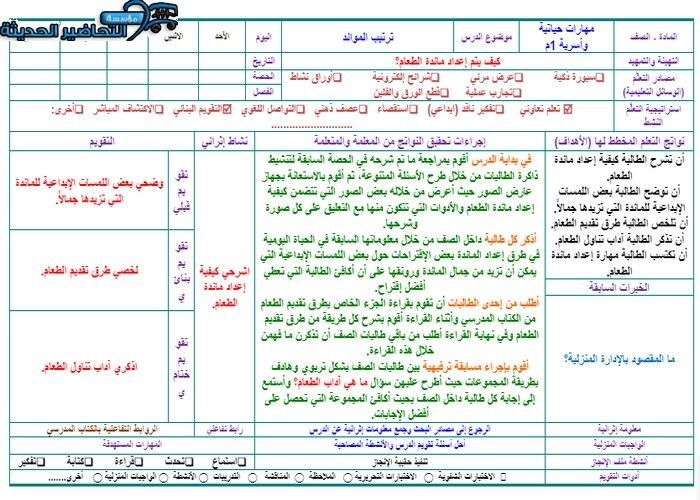 مؤسسة
التحاضير الحديثة
المادة - الصف
مهارات حياتية وأسرية 1م
موضوع الدرس
ترتيب الموائد
اليوم
الأحد
الاثنين
التهيئة والتمهيد
كيف يتم إعداد مائدة الطعام؟
التاريخ
مصادر التعلم
(الوسائل التعليمية)
سبورة ذكية
عرض مرئي
شرائح إلكترونية
أوراق نشاط
تجارب عملية
قطع الورق والفلين
الحصة
الفصل
استراتيجية التعلم النشط
تعلم تعاوني
تفكير ناقد (ابداعي)
استقصاء
عصف ذهني
التواصل اللغوي
التقويم البنائي
الاكتشاف المباشر
أخرى:
..........................
نواتج التعلم المخطط لها (الأهداف)
إجراءات تحقيق النواتج من المعلمة والمتعلمة
نشاط إثرائي
التقويم
أن تشرح الطالبة كيفية إعداد مائدة
الطعام.
أن توضح الطالبة بعض اللمسات
الإبداعية للمائدة التي تزيدها جمالاً.
أن تلخص الطالبة طرق تقديم الطعام.
أن تذكر الطالبة آداب تناول الطعام.
أن تكتسب الطالبة مهارة إعداد مائدة
الطعام.
الخبرات السابقة
ما المقصود بالإدارة المنزلية؟
في بداية الدرس أقوم بمراجعة ما تم شرحه في الحصة السابقة لتنشيط
ذاكرة الطالبات من خلال طرح الأسئلة المتنوعة، ثم أقوم بالاستعانة بجهاز
عارض الصور حيث أعرض من خلاله بعض الصور التي تتضمن كيفية
إعداد مائدة الطعام والأدوات التي تتكون منها مع التعليق على كل صورة
وشرحها.
أذكر كل طالبة داخل الصف من خلال معلوماتها السابقة في الحياة اليومية
في طرق إعداد المائدة بعض الإقتراحات حول بعض اللمسات الإبداعية التي
يمكن أن تزيد من جمال المائدة ورونقها على أن أكافئ الطالبة التي تعطي
أفضل إقتراح.
أطلب من إحدى الطالبات أن تقوم بقراءة الجزء الخاص بطرق تقديم الطعام
من الكتاب المدرسي وأثناء القراءة أقوم بشرح كل طريقة من طرق تقديم
الطعام وفي نهاية القراءة أطلب من باقي طالبات الصف أن تذكرن ما فهمن
خلال هذه القراءة.
أقوم بإجراء مسابقة ترفيهية بين طالبات الصف بشكل تربوي وهادف
بطريقة المجموعات حيث أطرح عليهن سؤال ما هي آداب الطعام؟ وأستمع
إلى إجابة كل طالبة داخل الصف بحيث أكافئ المجموعة التي تحصل على
أفضل الإجابات.
اشرحي كيفية
إعداد مائدة
الطعام.
تقويم قبلي
وضحي بعض اللمسات الإبداعية للمائدة
التي تزيدها جمالاً.
تقويم بنائي
لخصي طرق تقديم الطعام.
تقويم ختامي
اذكري آداب تناول الطعام.
معلومة إثرائية
الرجوع إلى مصادر البحث وجمع معلومات إثرائية عن الدرس
رابط تفاعلي
الروابط التفاعلية بالكتاب المدرسي
الواجبات المنزلية
أحل أسئلة تقويم الدرس والأنشطة المصاحبة
المهارات المستهدفة
أنشطة ملف الإنجاز
تنفيذ حقيبة الإنجاز
استماع
تحدث
قراءة
كتابة
تفكير
أدوات التقويم
الاختبارات الشفوية
الاختبارات التحريرية
الملاحظة
المناقشة
التدريبات
الأنشطة
الواجبات المنزلية
أخرى.......